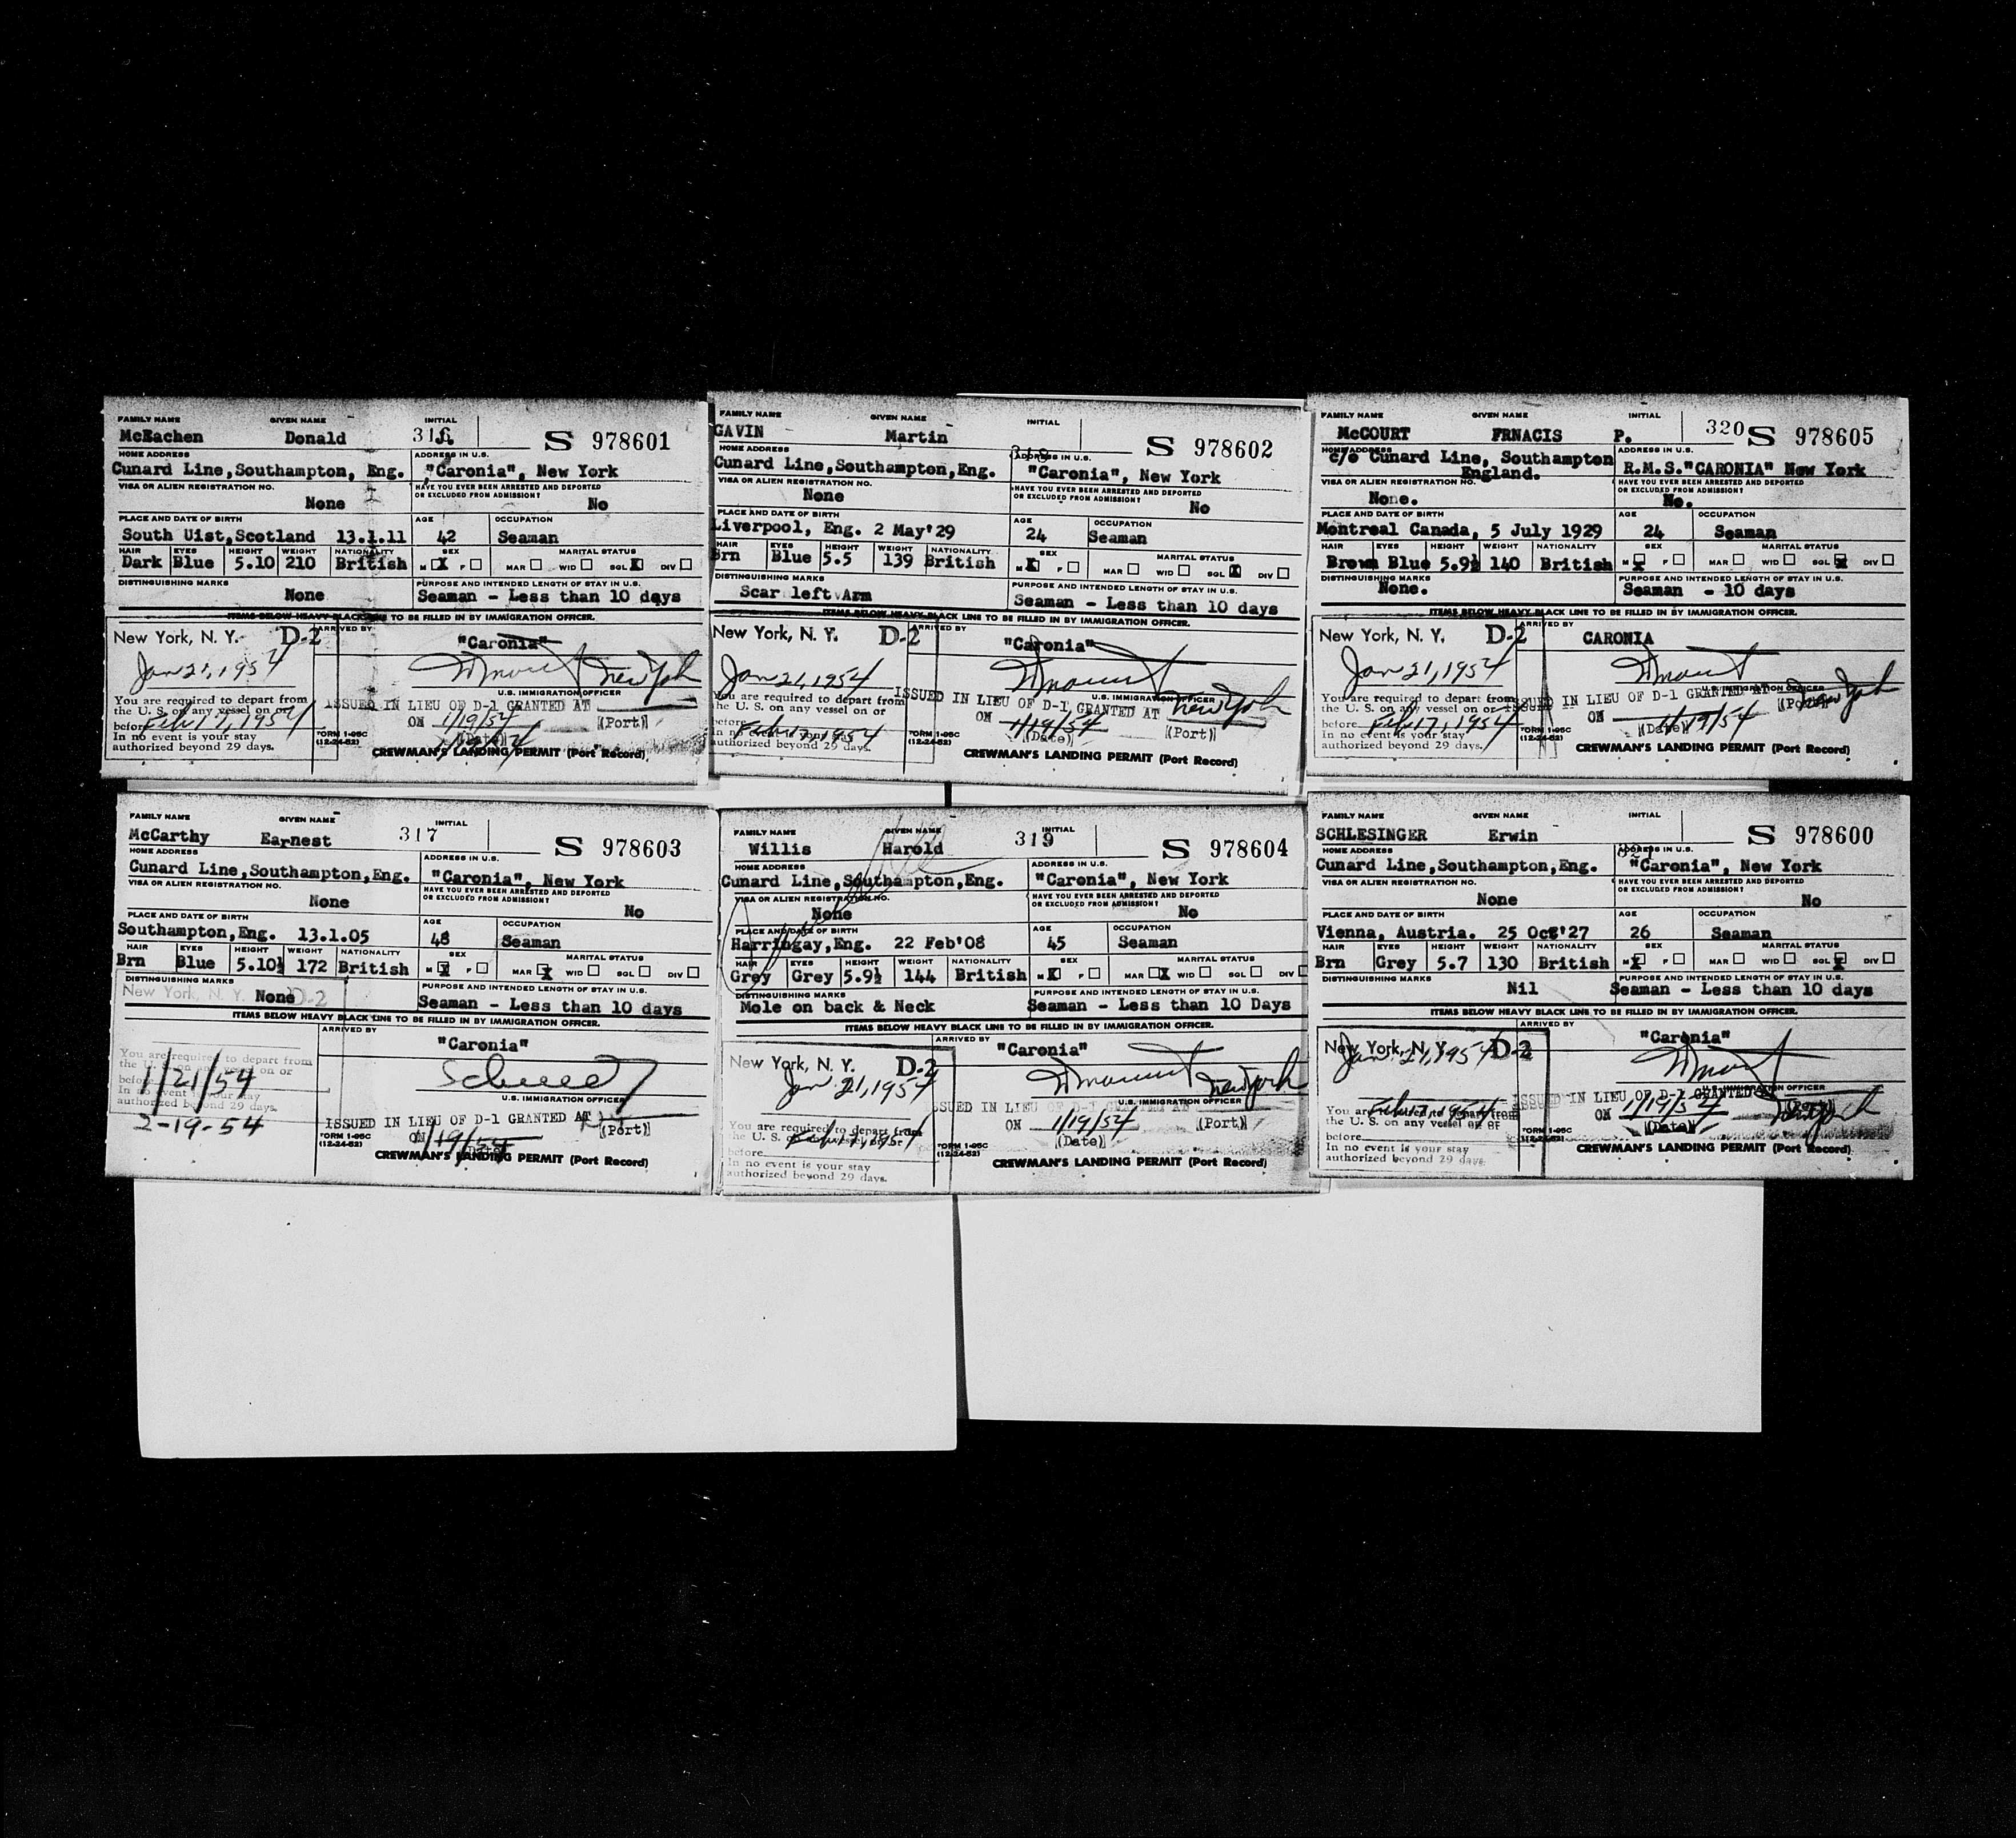 FAMILY NAME GIVEN NAME INITIAL
McEachen Donald 316 S 978601
HOME ADDRESS ADDRESS IN U.S.
Cunard Line,Southampton, Eng. "Caronia", New York
VISA OR ALIEN REGISTRATION NO. HAVE YOU EVER BEEN ARRESTED AND DEPORTED
OR EXCLUDED FROM ADMISSION?
None No
PLACE AND DATE OF BIRTH AGE OCCUPATION
South Uist,Scotland 13.1.11 42 Seaman
HAIR EYES HEIGHT WEIGHT NATIONALITY SEX MARITAL STATUS
Dark Blue 5.10 210 British M X F MAR WID SGL X DIV
DISTINGUISHING MARKS PURPOSE AND INTENDED LENGTH OF STAY IN U.S.
None Seaman - Less than 10 days
ITEMS BELOW HEAVY BLACK LINE TO BE FILLED IN BY IMMIGRATION OFFICER.
New York, N. Y. D-2 ARRIVED BY
"Caronia"
Jan 21, 1954 New York
You are required to depart from U.S. IMMIGRATION OFFICER
the U. S. on any vessel on or ISSUED IN LIEU OF D-1 GRANTED AT
before Feb 17, 1954 ON 1/19/54 (Port)
In no event is your stay (Date)
authorized beyond 29 days. FORM I-95C
(12-24-52) CREWMAN'S LANDING PERMIT (Port Record)
FAMILY NAME GIVEN NAME INITIAL
GAVIN Martin S 978602
HOME ADDRESS 318 ADDRESS IN U.S.
Cunard Line,Southampton,Eng. "Caronia", New York
VISA OR ALIEN REGISTRATION NO. HAVE YOU EVER BEEN ARRESTED AND DEPORTED
OR EXCLUDED FROM ADMISSION?
None No
PLACE AND DATE OF BIRTH AGE OCCUPATION
Liverpool, Eng. 2 May'29 24 Seaman
HAIR EYES HEIGHT WEIGHT NATIONALITY SEX MARITAL STATUS
Brn Blue 5.5 139 British M X F MAR WID SGL X DIV
DISTINGUISHING MARKS PURPOSE AND INTENDED LENGTH OF STAY IN U.S.
Scar left Arm Seaman - Less than 10 days
ITEMS BELOW HEAVY BLACK LINE TO BE FILLED IN BY IMMIGRATION OFFICER.
New York, N. Y. D-2 ARRIVED BY
"Caronia"
Jan 21, 1954
You are required to depart from U.S. IMMIGRATION OFFICER
the U. S. on any vessel on or ISSUED IN LIEU OF D-1 GRANTED AT New York
before Feb 17, 1954 ON 1/19/54 (Port)
In no event is your stay (Date)
authorized beyond 29 days. FORM I-95C
(12-24-52) CREWMAN'S LANDING PERMIT (Port Record)
FAMILY NAME GIVEN NAME INITIAL
McCOURT FRNACIS P. 320 S 978605
HOME ADDRESS ADDRESS IN U.S.
c/o Cunard Line, Southampton R.M.S."CARONIA" New York
England.
VISA OR ALIEN REGISTRATION NO. HAVE YOU EVER BEEN ARRESTED AND DEPORTED
OR EXCLUDED FROM ADMISSION?
None. No.
PLACE AND DATE OF BIRTH AGE OCCUPATION
Montreal Canada, 5 July 1929 24 Seaman
HAIR EYES HEIGHT WEIGHT NATIONALITY SEX MARITAL STATUS
Brown Blue 5.9½ 140 British M X F MAR WID SGL X DIV
DISTINGUISHING MARKS PURPOSE AND INTENDED LENGTH OF STAY IN U.S.
None. Seaman - 10 days
ITEMS BELOW HEAVY BLACK LINE TO BE FILLED IN BY IMMIGRATION OFFICER.
New York, N. Y. D-2 ARRIVED BY
CARONIA
Jan 21, 1954
You are required to depart from U.S. IMMIGRATION OFFICER
the U. S. on any vessel on or ISSUED IN LIEU OF D-1 GRANTED AT New York
before Feb 17, 1954 ON 1/19/54 (Port)
In no event is your stay (Date)
authorized beyond 29 days. FORM I-95C
(12-24-52) CREWMAN'S LANDING PERMIT (Port Record)
FAMILY NAME GIVEN NAME INITIAL
McCarthy Earnest 317 S 978603
HOME ADDRESS ADDRESS IN U.S.
Cunard Line,Southampton,Eng. "Caronia", New York
VISA OR ALIEN REGISTRATION NO. HAVE YOU EVER BEEN ARRESTED AND DEPORTED
OR EXCLUDED FROM ADMISSION?
None No
PLACE AND DATE OF BIRTH AGE OCCUPATION
Southampton,Eng. 13.1.05 48 Seaman
HAIR EYES HEIGHT WEIGHT NATIONALITY SEX MARITAL STATUS
Brn Blue 5.10½ 172 British M X F MAR X WID SGL DIV
DISTINGUISHING MARKS PURPOSE AND INTENDED LENGTH OF STAY IN U.S.
New York, N. Y. None D-2 Seaman - Less than 10 days
ITEMS BELOW HEAVY BLACK LINE TO BE FILLED IN BY IMMIGRATION OFFICER.
ARRIVED BY
"Caronia"
You are required to depart from
the U. S. on any vessel on or
before 1/21/54 U.S. IMMIGRATION OFFICER
In no event is your stay
authorized beyond 29 days. ISSUED IN LIEU OF D-1 GRANTED AT
2-19-54 ON 1/19/54 (Port)
FORM I-95C (Date)
(12-24-52) CREWMAN'S LANDING PERMIT (Port Record)
FAMILY NAME GIVEN NAME INITIAL
Willis Harold 319 S 978604
HOME ADDRESS ADDRESS IN U.S.
Cunard Line,Southampton,Eng. "Caronia", New York
VISA OR ALIEN REGISTRATION NO. HAVE YOU EVER BEEN ARRESTED AND DEPORTED
OR EXCLUDED FROM ADMISSION?
None No
PLACE AND DATE OF BIRTH AGE OCCUPATION
Harringay,Eng. 22 Feb'08 45 Seaman
HAIR EYES HEIGHT WEIGHT NATIONALITY SEX MARITAL STATUS
Grey Grey 5.9½ 144 British M X F MAR X WID SGL DIV
DISTINGUISHING MARKS PURPOSE AND INTENDED LENGTH OF STAY IN U.S.
Mole on back & Neck Seaman - Less than 10 Days
ITEMS BELOW HEAVY BLACK LINE TO BE FILLED IN BY IMMIGRATION OFFICER.
New York, N. Y. D-2 ARRIVED BY
"Caronia"
Jan 21, 1954 New York
U.S. IMMIGRATION OFFICER
ISSUED IN LIEU OF D-1 GRANTED AT
You are required to depart from ON 1/19/54 (Port)
the U. S. Feb 17, 1954 (Date)
before FORM I-95C
In no event is your stay (12-24-52)
authorized beyond 29 days. CREWMAN'S LANDING PERMIT (Port Record)
FAMILY NAME GIVEN NAME INITIAL
SCHLESINGER Erwin S 978600
HOME ADDRESS ADDRESS IN U.S.
Cunard Line,Southampton,Eng. "Caronia", New York
VISA OR ALIEN REGISTRATION NO. HAVE YOU EVER BEEN ARRESTED AND DEPORTED
OR EXCLUDED FROM ADMISSION?
None No
PLACE AND DATE OF BIRTH AGE OCCUPATION
Vienna, Austria. 25 Oct'27 26 Seaman
HAIR EYES HEIGHT WEIGHT NATIONALITY SEX MARITAL STATUS
Brn Grey 5.7 130 British M X F MAR WID SGL X DIV
DISTINGUISHING MARKS PURPOSE AND INTENDED LENGTH OF STAY IN U.S.
Nil Seaman - Less than 10 days
ITEMS BELOW HEAVY BLACK LINE TO BE FILLED IN BY IMMIGRATION OFFICER.
ARRIVED BY
New York, N. Y. D-2 "Caronia"
Jan 21, 1954
U.S. IMMIGRATION OFFICER
Feb 17, 1954 ISSUED IN LIEU OF D-1 GRANTED AT New York
You are required to depart from ON 1/19/54 (Port)
the U. S. on any vessel on or (Date)
before FORM I-95C
In no event is your stay (12-24-52)
authorized beyond 29 days. CREWMAN'S LANDING PERMIT (Port Record)